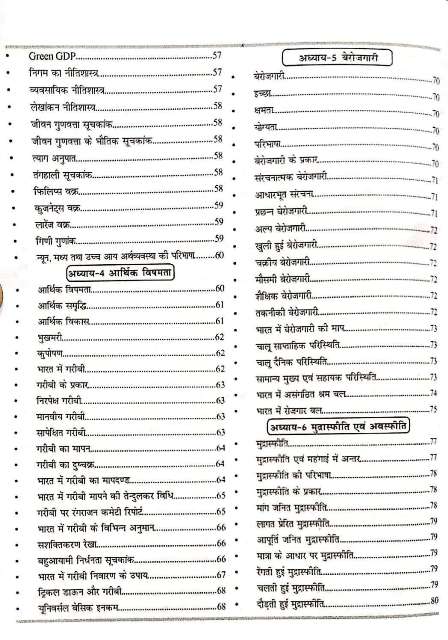 Green GDP....................57
निगम का नीतिशास्त्र....................57
व्यवसायिक नीतिशास्त्र....................57
लेखांकन नीतिशास्त्र....................58
जीवन गुणवत्ता सूचकांक....................58
जीवन गुणवत्ता के भौतिक सूचकांक....................58
त्याग अनुपात....................58
तंगहाली सूचकांक....................58
फिलिप्स वक्र....................58
कुजनेट्स वक्र....................59
लारेंज वक्र....................59
गिणी गुणांक....................59
न्यून, मध्य तथा उच्च आय अर्थव्यवस्था की परिभाषा....................60
अध्याय-4 आर्थिक विषमता
आर्थिक विषमता....................60
आर्थिक समृद्धि....................61
आर्थिक विकास....................61
भुखमरी....................62
कुपोषण....................62
भारत में गरीबी....................62
गरीबी के प्रकार....................63
निरपेक्ष गरीबी....................63
मानवीय गरीबी....................63
सापेक्षित गरीबी....................63
गरीबी का मापन....................64
गरीबी का दुष्चक्र....................64
भारत में गरीबी का मापदण्ड....................64
भारत में गरीबी मापने की तेन्दुलकर विधि....................65
गरीबी पर रंगराजन कमेटी रिपोर्ट....................65
भारत में गरीबी के विभिन्न अनुमान....................66
सशक्तिकरण रेखा....................66
बहुआयामी निर्धनता सूचकांक....................66
भारत में गरीबी निवारण के उपाय....................67
ट्रिकल डाऊन और गरीबी....................68
यूनिवर्सल बेसिक इनकम....................68
अध्याय-5 बेरोजगारी
बेरोजगारी....................70
इच्छा....................70
क्षमता....................70
योग्यता....................70
परिभाषा....................70
बेरोजगारी के प्रकार....................70
संरचनात्मक बेरोजगारी....................71
आधारभूत संरचना....................71
प्रछन्न बेरोजगारी....................71
अल्प बेरोजगारी....................72
खुली हुई बेरोजगारी....................72
चक्रीय बेरोजगारी....................72
मौसमी बेरोजगारी....................72
शैक्षिक बेरोजगारी....................72
तकनीकी बेरोजगारी....................72
भारत में बेरोजगारी की माप....................73
चालू साप्ताहिक परिस्थिति....................73
चालू दैनिक परिस्थिति....................73
सामान्य मुख्य एवं सहायक परिस्थिति....................73
भारत में असंगठित श्रम बल....................74
भारत में रोजगार बल....................75
अध्याय-6 मुद्रास्फीति एवं अवस्फीति
मुद्रास्फीति....................77
मुद्रास्फीति एवं महंगाई में अन्तर....................77
मुद्रास्फीति की परिभाषा....................78
मुद्रास्फीति के प्रकार....................78
मांग जनित मुद्रास्फीति....................78
लागत प्रेरित मुद्रास्फीति....................79
आपूर्ति जनित मुद्रास्फीति....................79
मात्रा के आधार पर मुद्रास्फीति....................79
रेंगती हुई मुद्रास्फीति....................79
चलती हुई मुद्रास्फीति....................79
दौड़ती हुई मुद्रास्फीति....................80